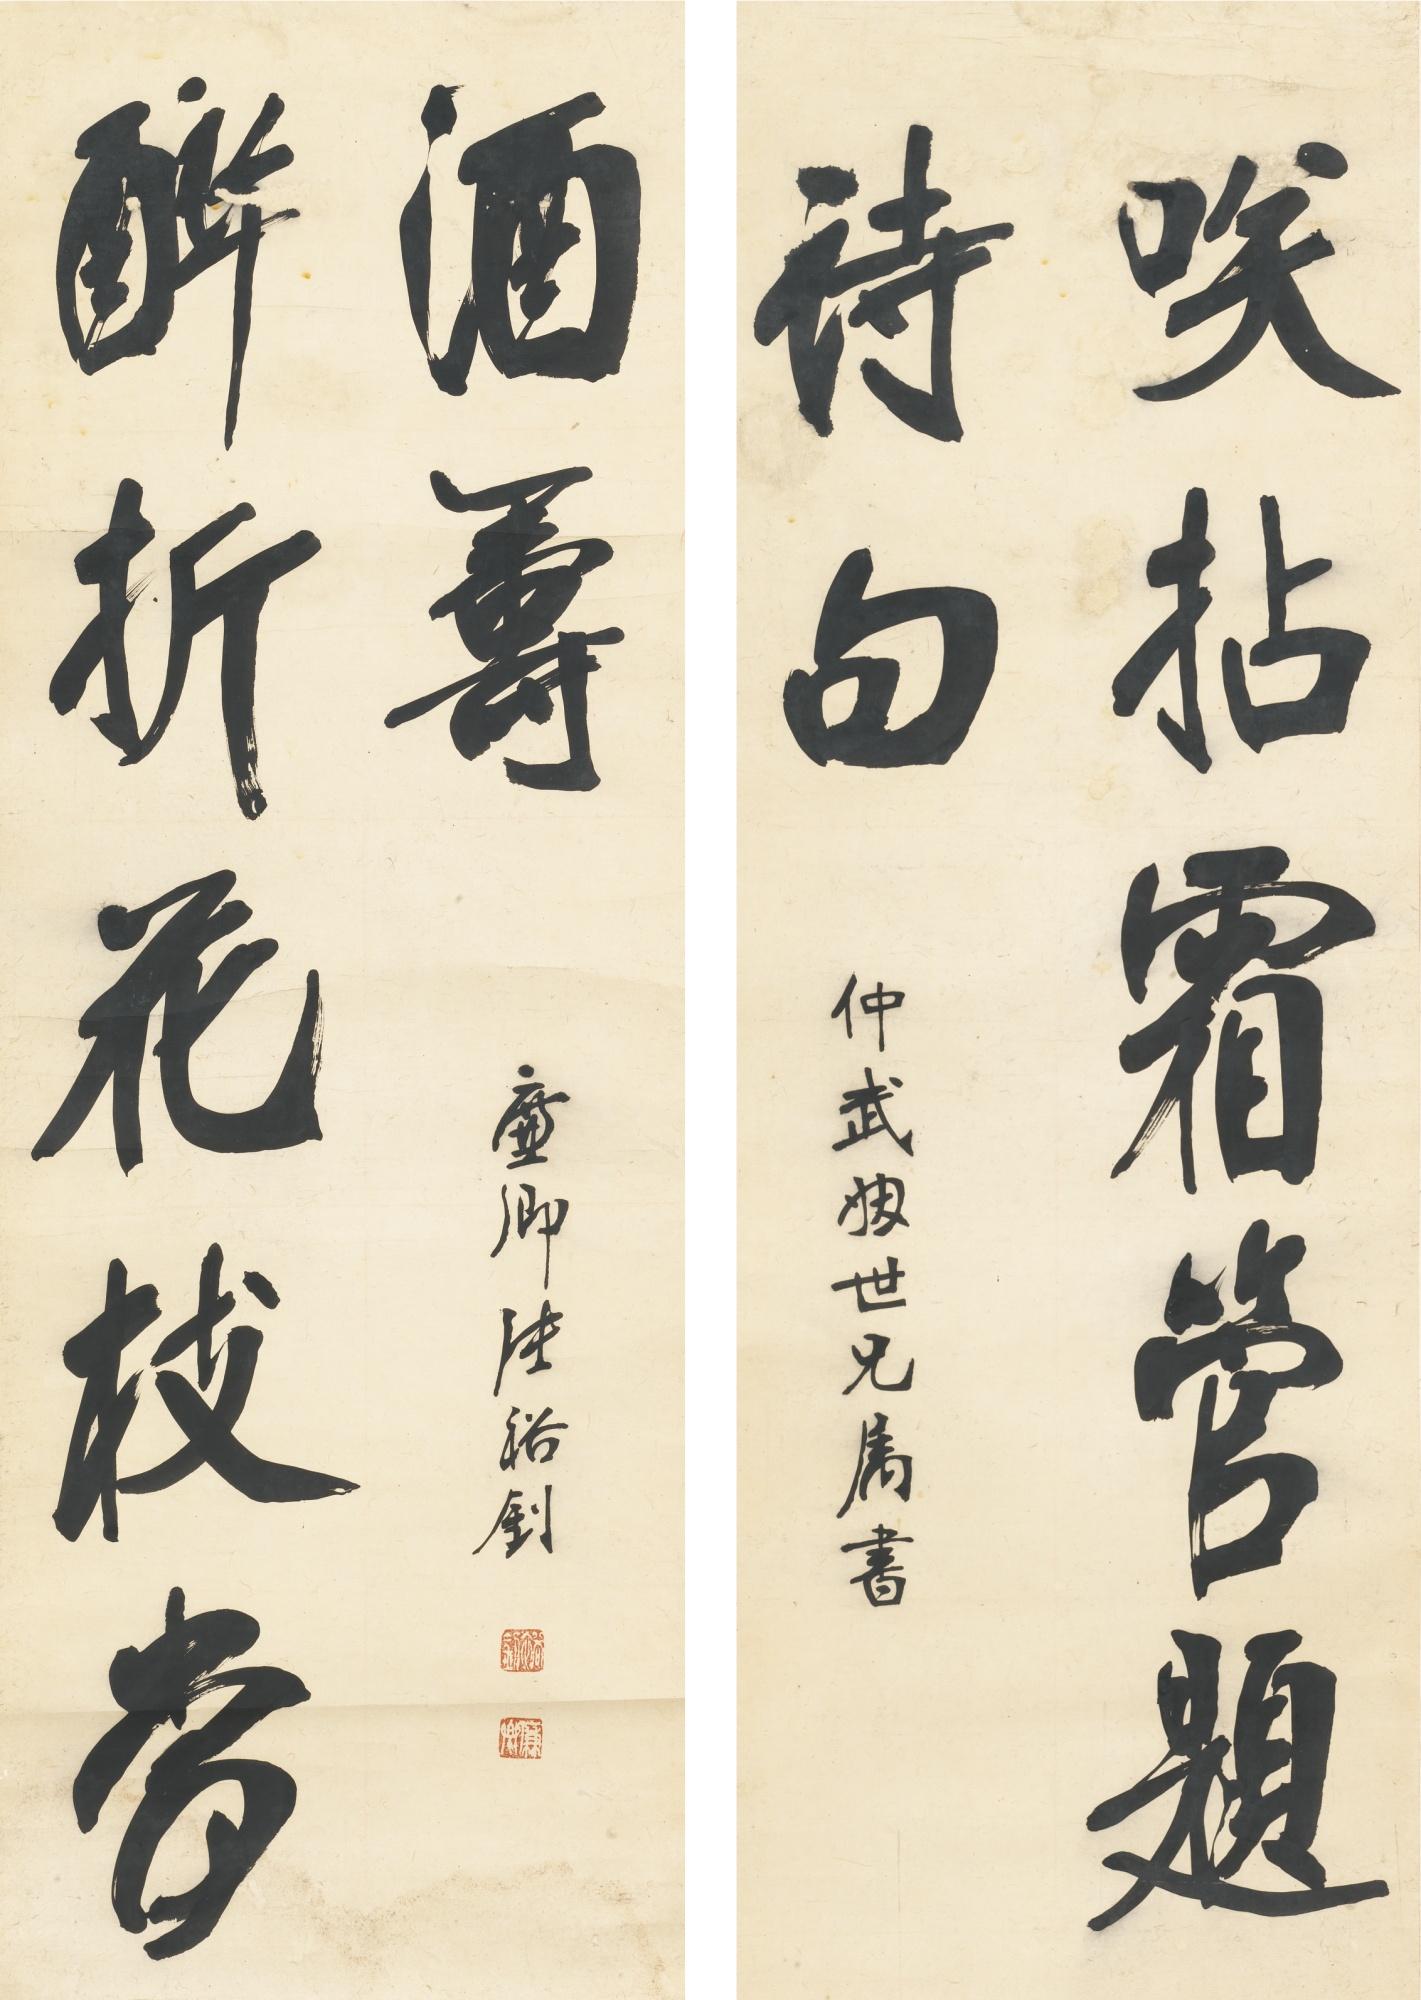 咲拈霜管題
詩句
仲武姻世兄属書
醉折花枝當
酒籌
廉卿張裕釗
廉卿